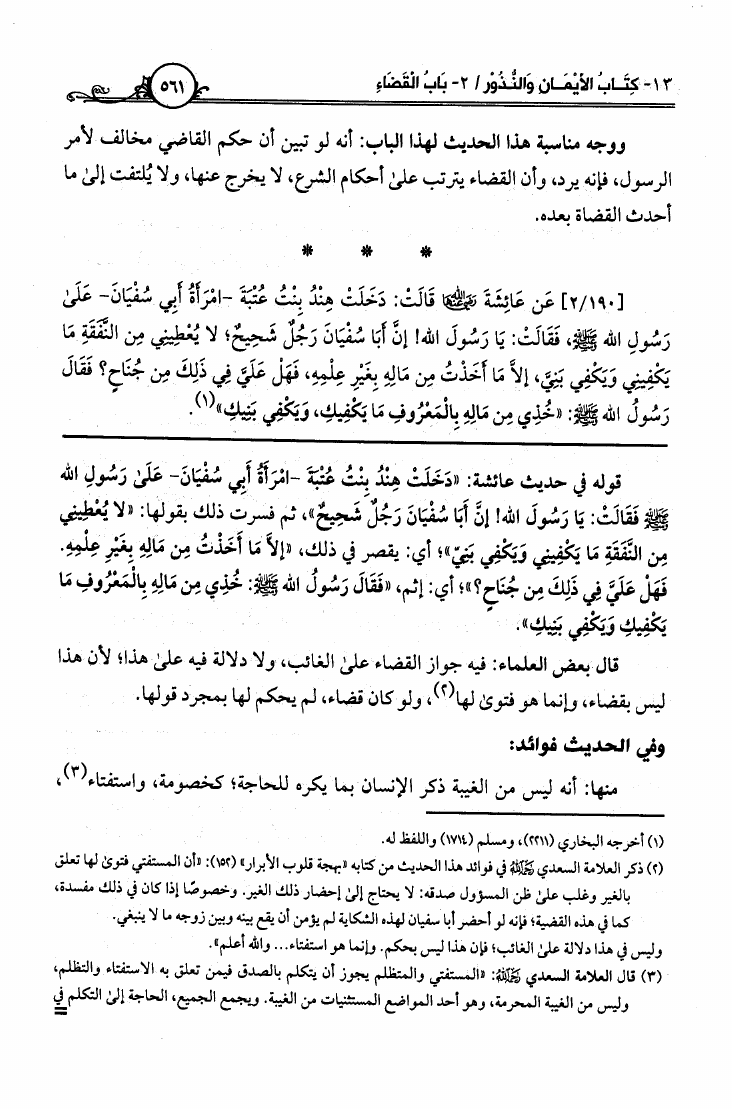 ١٣- كِتَـابُ الأَيْمَـانِ وَالنُّـذُوْرِ / ٢- بَابُ الْقَضَاءِ
٥٦١
ووجه مناسبة هذا الحديث لهذا الباب: أنه لو تبين أن حكم القاضي مخالف لأمر
الرسول، فإنه يرد، وأن القضاء يترتب علىٰ أحكام الشرع، لا يخرج عنها، ولا يُلتفت إلىٰ ما
أحدث القضاة بعده.
* * *
[٢/١٩٠] عَن عَائِشَةَ رَضِيَ اللَّهُ عَنْهَا قَالَتْ: دَخَلَتْ هِنْدُ بِنْتُ عُتْبَةَ -امْرَأَةُ أَبِي سُفْيَانَ- عَلَىٰ
رَسُولِ الله ﷺ، فَقَالَتْ: يَا رَسُولَ الله! إِنَّ أَبَا سُفْيَانَ رَجُلٌ شَحِيحٌ؛ لا يُعْطِينِي مِن النَّفَقَةِ مَا
يَكْفِينِي وَيَكْفِي بَنِيَّ، إلاَّ مَا أَخَذْتُ مِن مَالِهِ بِغَيْرِ عِلْمِهِ، فَهَلْ عَلَيَّ فِي ذَلِكَ مِن جُنَاحٍ؟ فَقَالَ
رَسُولُ الله ﷺ: «خُذِي مِن مَالِهِ بِالْمَعْرُوفِ مَا يَكْفِيكِ، وَيَكْفِي بَنِيكِ»(١).
قوله في حديث عائشة: «دَخَلَتْ هِنْدُ بِنْتُ عُتْبَةَ -امْرَأَةُ أَبِي سُفْيَانَ- عَلَىٰ رَسُولِ الله
ﷺ فَقَالَتْ: يَا رَسُولَ الله! إِنَّ أَبَا سُفْيَانَ رَجُلٌ شَحِيحٌ»، ثم فسرت ذلك بقولها: «لا يُعْطِينِي
مِن النَّفَقَةِ مَا يَكْفِينِي وَيَكْفِي بَنِيَّ»؛ أي: يقصر في ذلك، «إلاَّ مَا أَخَذْتُ مِن مَالِهِ بِغَيْرِ عِلْمِهِ.
فَهَلْ عَلَيَّ فِي ذَلِكَ مِن جُنَاحٍ؟»؛ أي: إثم، «فَقَالَ رَسُولُ الله ﷺ: خُذِي مِن مَالِهِ بِالْمَعْرُوفِ مَا
يَكْفِيكِ وَيَكْفِي بَنِيكِ».
قال بعض العلماء: فيه جواز القضاء علىٰ الغائب، ولا دلالة فيه علىٰ هذا؛ لأن هذا
ليس بقضاء، وإنما هو فتوىٰ لها(٢)، ولو كان قضاء، لم يحكم لها بمجرد قولها.
وفي الحديث فوائد:
منها: أنه ليس من الغيبة ذكر الإنسان بما يكره للحاجة؛ كخصومة، واستفتاء(٣)،
(١) أخرجه البخاري (٢٢١١)، ومسلم (١٧١٤) واللفظ له.
(٢) ذكر العلامة السعدي رَحِمَهُ اللَّهُ في فوائد هذا الحديث من كتابه «بهجة قلوب الأبرار» (١٥٢): «أن المستفتي فتوىٰ لها تعلق
بالغير وغلب علىٰ ظن المسؤول صدقه: لا يحتاج إلىٰ إحضار ذلك الغير. وخصوصًا إذا كان في ذلك مفسدة،
كما في هذه القضية؛ فإنه لو أحضر أبا سفيان لهذه الشكاية لم يؤمن أن يقع بينه وبين زوجه ما لا ينبغي.
وليس في هذا دلالة علىٰ الغائب؛ فإن هذا ليس بحكم. وإنما هو استفتاء... والله أعلم».
(٣) قال العلامة السعدي رَحِمَهُ اللَّهُ: «المستفتي والمتظلم يجوز أن يتكلم بالصدق فيمن تعلق به الاستفتاء والتظلم،
وليس من الغيبة المحرمة، وهو أحد المواضع المستثنيات من الغيبة. ويجمع الجميع، الحاجة إلىٰ التكلم في
=